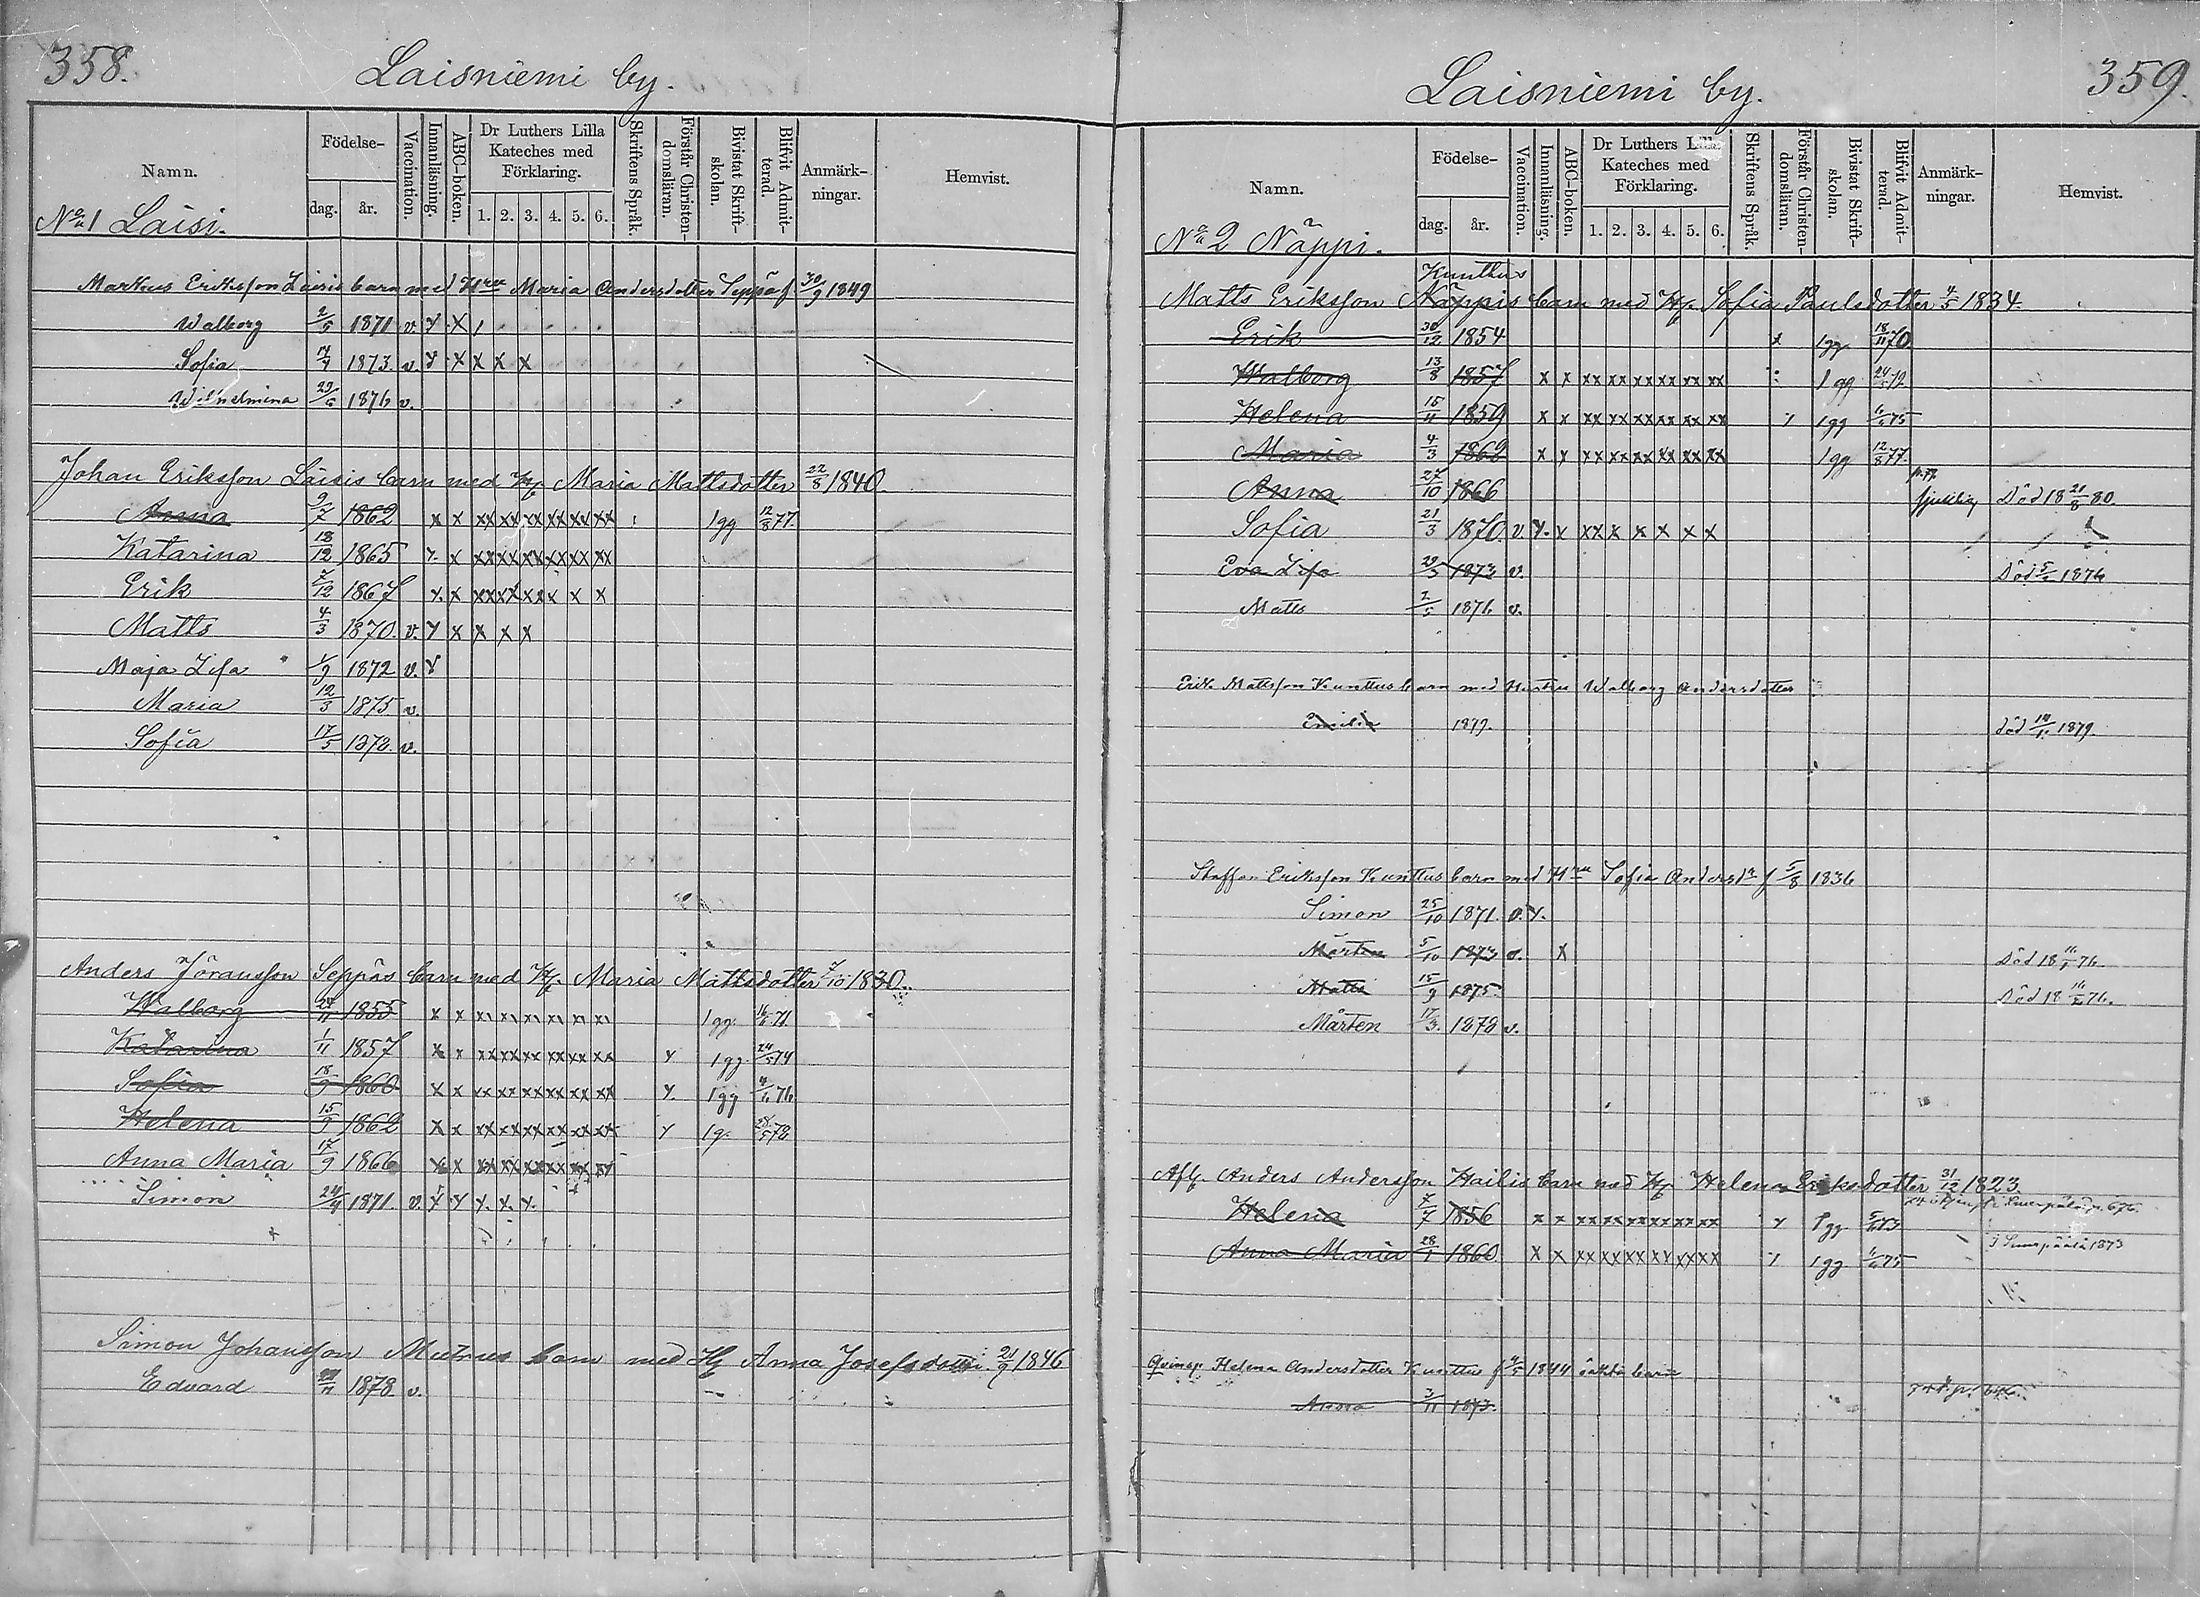 358.
Laisniemi by.
Namn.
Födelse-
dag. år.
Vaccination.
Innanläsning.
ABC-boken.
Dr Luthers Lilla Kateches med Förklaring.
1. 2. 3. 4. 5. 6.
Skriftens Språk.
Förstår Christendomsläran.
Bivistat Skriftskolan.
Blifvit Admitterad.
Anmärkningar.
Hemvist.
No 1 Laisi.
Markus Eriksson Laisis barn med Hru Maria Andersdotter Seppä f 30/9 1849
Walborg 2/5 1871 v. x x
Sofia 1873. v. x x x x x
Wilhelmina 1876 v.
Johan Eriksson Laisis barn med Hu Maria Mattsdotter 22/8 1840
Anna 9/7 1862 x x xx xx xx xx xx xx 1 gg 12/8 77.
Katarina 18/12 1865 x x xx xx xx xx xx xx
Erik 7/12 1867 x x xx xx xx x x x
Matts 4/3 1870. v. x x x x x
Maja Lisa 1/9 1872 v. x
Maria 12/3 1875 v.
Sofia 17/5 1878. v.
Anders Jöransson Seppäs barn med Hu Maria Mattsdotter 7/10 1830.
Walborg 24/11 1855 x x xx xx xx xx xx xx 1 gg 71.
Katarina 1/11 1857 x x xx xx xx xx xx xx x 1 gg. 24/5 74
Sofia 18/9 1860 x x xx xx xx xx xx xx x 1 gg 4/6 76
Helena 15/9 1862 x x xx xx xx xx xx xx x 1 g. 28/5 78
Anna Maria 17/9 1866 x x xx xx xx xx xx xx
Simon 1871. v. x x x. x. x.
Simon Johansson Mutrus barn med Hu Anna Josefsdotter 21/9 1846
Edvard 1878 v.
Laisniemi by.
359.
Namn.
Födelse-
dag. år.
Vaccination.
Innanläsning.
ABC-boken.
Dr Luthers Lilla Kateches med Förklaring.
1. 2. 3. 4. 5. 6.
Skriftens Språk.
Förstår Christendomsläran.
Bivistat Skriftskolan.
Blifvit Admitterad.
Anmärkningar.
Hemvist.
No 2 Näppi.
Kunttus
Matts Eriksson Näppis barn med Hu Sofia Paulsdotter 4/5 1834.
Erik 30/12 1854 x 1 gg 18/11 70.
Walborg 13/8 1857 x x xx xx xx xx xx xx 1 gg 24/5 72
Helena 15/11 1859 x x xx xx xx xx xx xx x 1 gg 6/6 75
Maria 4/3 1862 x x xx xx xx xx xx xx 1 gg 12/8 77.
Anna 27/10 1866 sjuklig Död 18 21/8 80.
Sofia 21/3 1870. v. x. x xx x x x x x
Eva Lisa 1873 v. Död 1876
Matts 2/5 1876 v.
Erik Mattsson Kunttus barn med Hustru Walborg Andersdotter
Emilia 1879. död 1879.
Staffan Eriksson Kunttus barn med Hru Sofia Andersdr f 5/8 1836
Simon 25/10 1871. v. x.
Mårten 5/10 1873 v. x Död 18 76
Matts 15/9 1875. Död 18 76.
Mårten 17/3. 1878 v.
Afl. Anders Andersson Hailis barn med Hu Helena Eriksdotter 31/12 1823.
Helena 7/7 1856 x x xx xx xx xx xx xx x 1 gg 73
Anna Maria 28/1 1860 x x xx xx xx xx xx xx x 1 gg 6/6 75 1873
Qvinsp. Helena Andersdotter Kunttus f 4/5 1844 oäkta barn
Anna 3/11 1873.